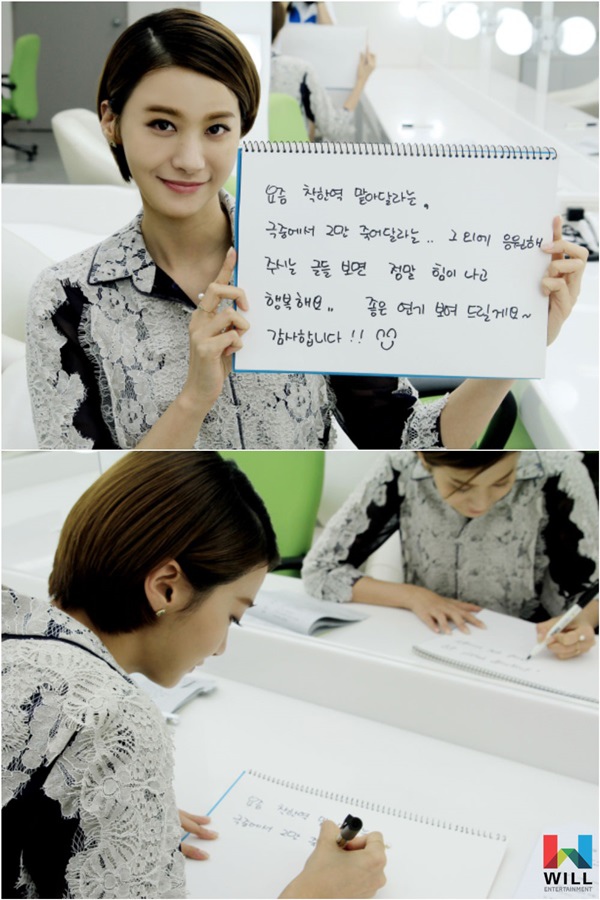 요즘 착한역 맡아달라는,
극중에서 고만 죽어달라는.. 그 외에 응원해
주시는 글들 보면 정말 힘이 나고
행복해요.. 좋은 연기 보여 드릴게요~
감사합니다!!
요즘 착한역
극중에서 고만
WILL
ENTERTAINMENT